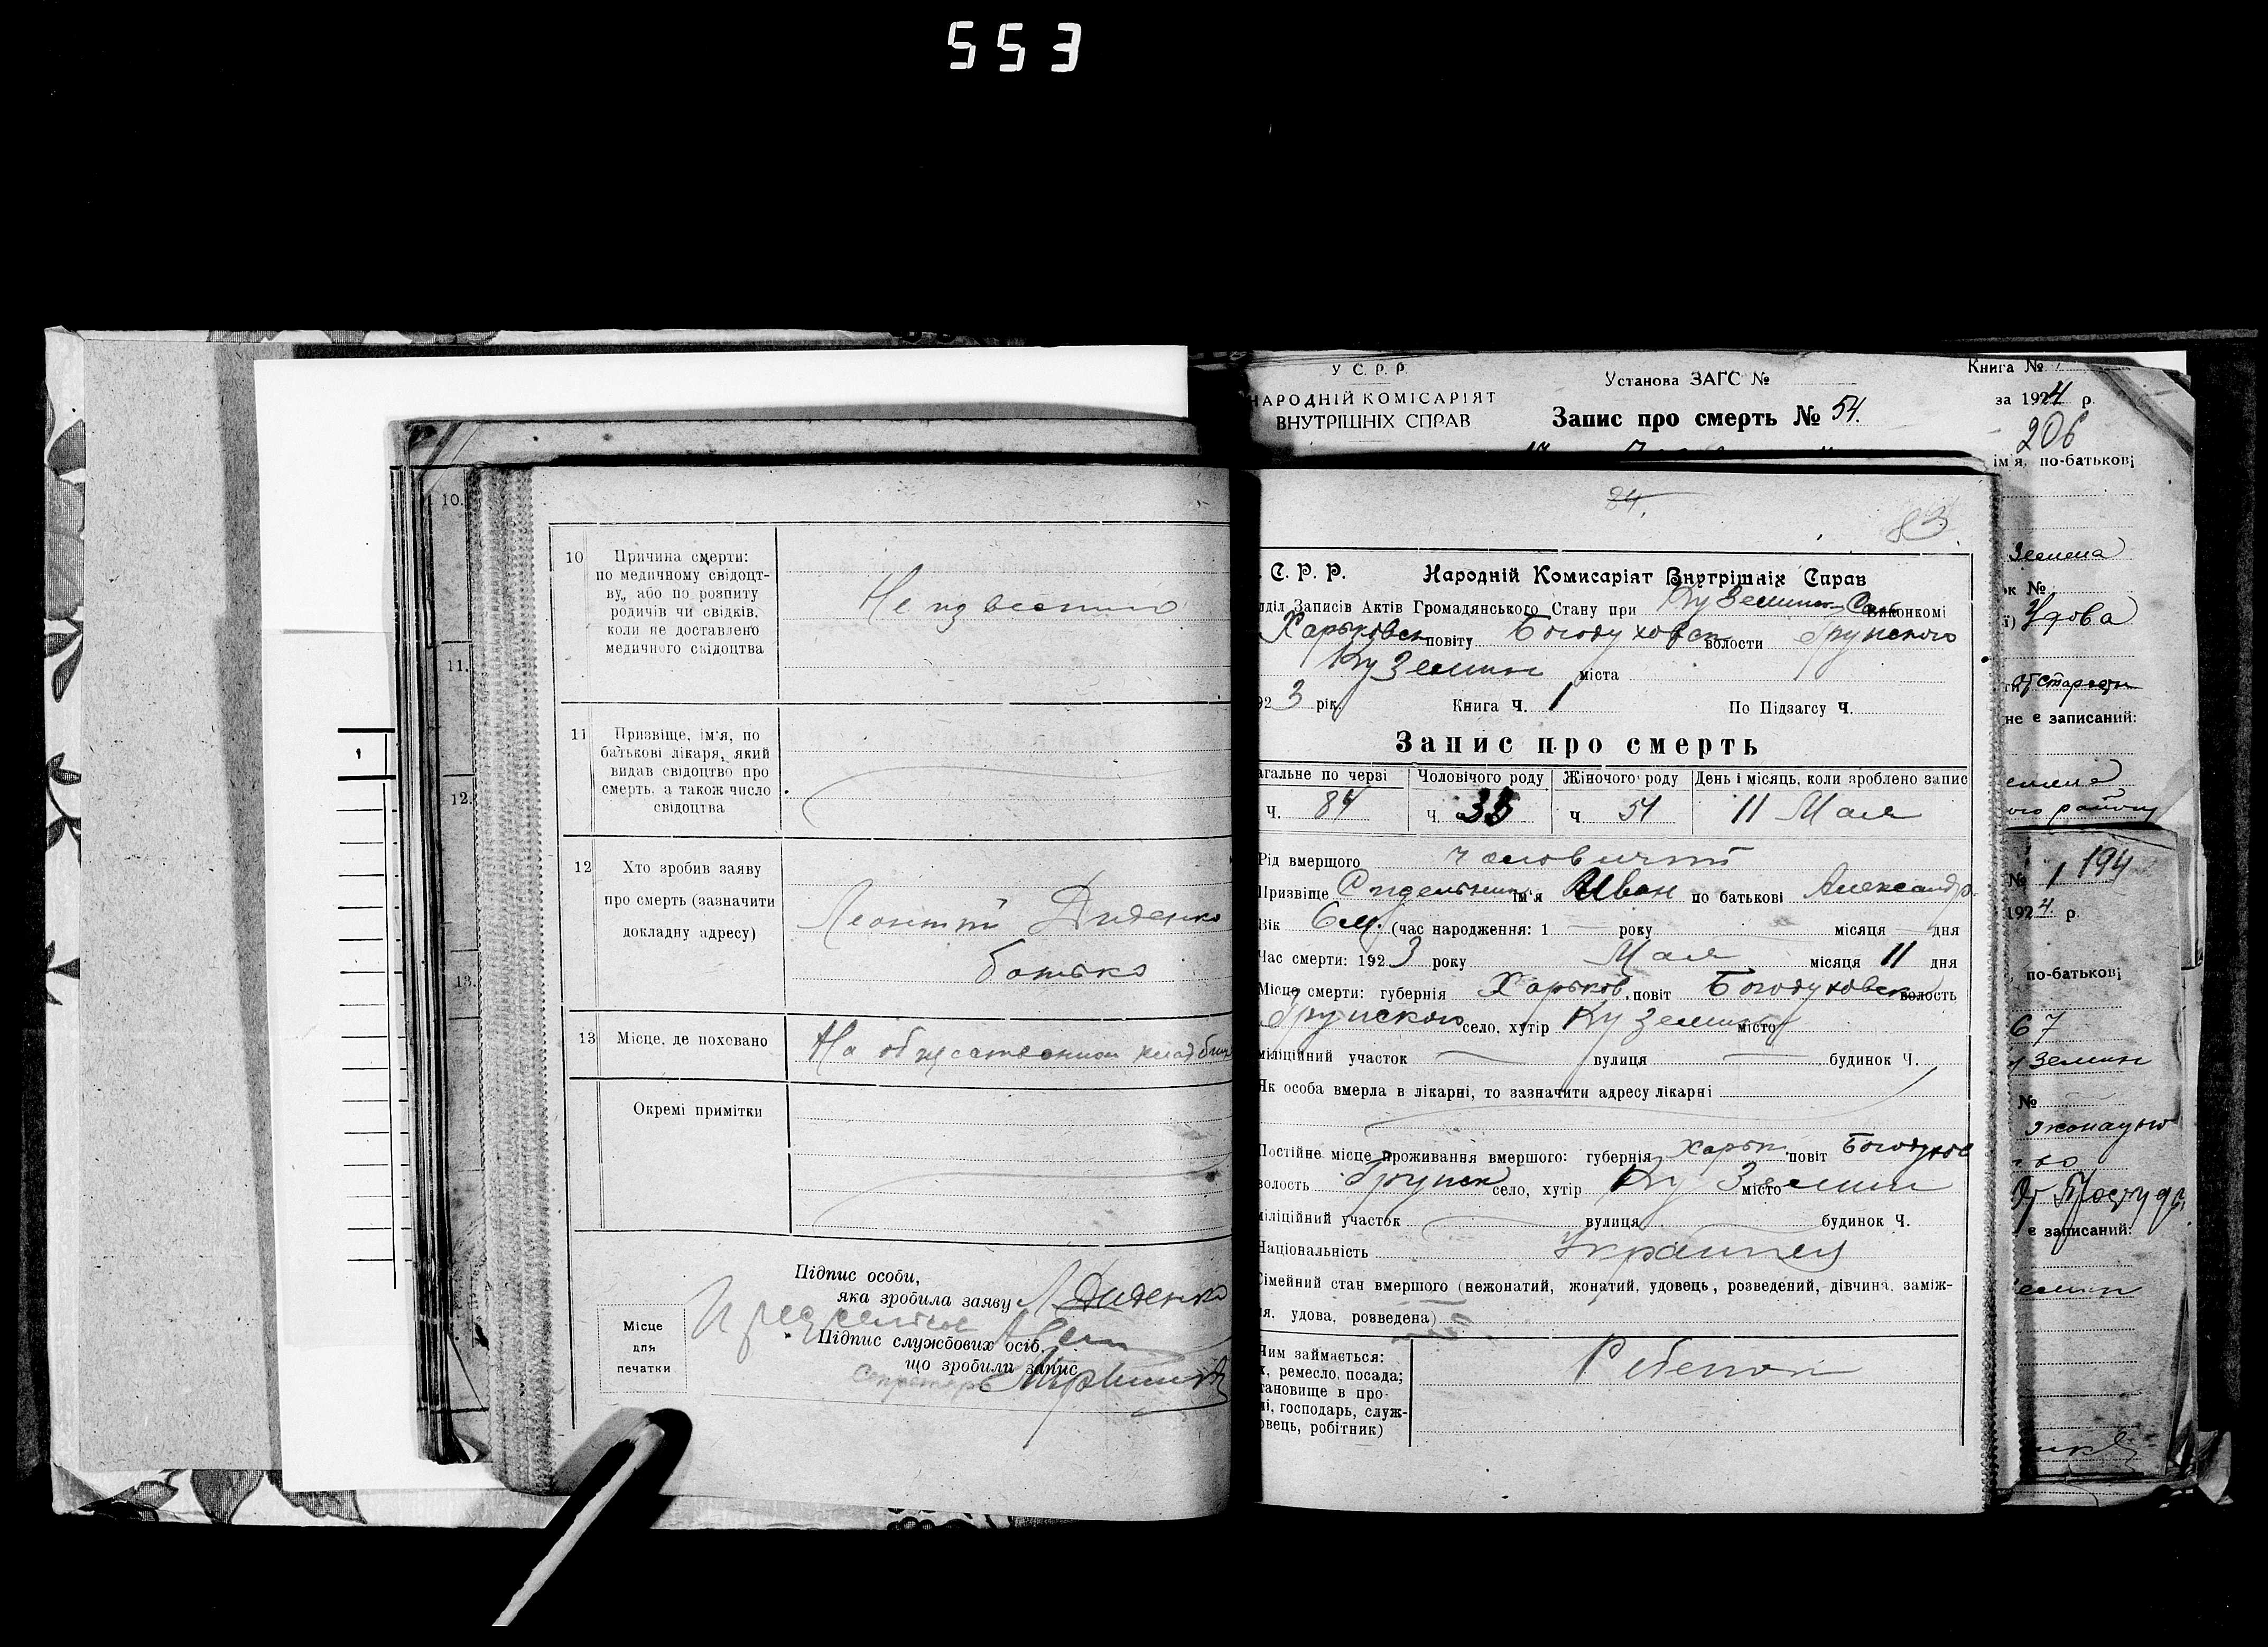 553
10.
11.
12.
13.
1
10 Причина смерти:
по медичному свідоцт-
ву, або по розпиту
родичів чи свідків,
коли не доставлено
медичного свідоцтва
Неизвестно
11 Призвіще, ім'я, по
батькові лікаря, який
видав свідоцтво про
смерть, а також число
свідоцтва
12 Хто зробив заяву
про смерть (зазначити
докладну адресу)
Леонтій Диденко
батько
13 Місце, де поховано
На общественном кладбищ
Окремі примітки
Підпис особи,
яка зробила заяву Л Диденко
Підпис службових осіб,
що зробили запис
Секретарь
Місце
для
печатки
У С. Р. Р.
НАРОДНІЙ КОМІСАРІЯТ
ВНУТРІШНІХ СПРАВ
Установа ЗАГС №
Запис про смерть № 54.
Книга №
за 1924 р.
206
ім'я, по-батькові
24.
83
. С. Р. Р. Народній Комісаріят Внутрішніх Справ
дділ Записів Актів Громадянського Стану при Ку Земин Сель виконкомі
Харьковск повіту Богодуховск волости Грунского
Ку Земин міста
923 рік. Книга Ч. 1 По Підзагсу Ч.
Запис про смерть
агальне по черзі Чоловічого роду Жіночого роду День і місяць, коли зроблено запис
Ч. 84 Ч. 33 Ч 51 11 Мая
Рід вмершого чоловичий
Призвіще ім'я Иван по батькові Александр.
Вік 6 м. (час народження: 1 — року місяця — дня
Час смерти: 1923 року Мая місяця 11 дня
Місце смерти: губернія Харьков. повіт Богодуховск волость
Грунского село, хутір Ку Земин місто
міліційний участок вулиця будинок Ч.
Як особа вмерла в лікарні, то зазначити адресу лікарні
Постійне місце проживання вмершого: губернія Харьк. повіт Богодухов
волость Грунск село, хутір Ку Земин місто
міліційний участок вулиця будинок Ч.
Національність Украинец
Сімейний стан вмершого (нежонатий, жонатий, удовець, розведений, дівчина, заміж-
я, удова, розведена)
Чим займається:
х, ремесло, посада;
тановище в про-
і, господарь, служ-
овець, робітник)
Ребенок
Земена
ок №
ї) Удова
от старости
не є записаний:
ого району
№ 1 194
1924 р.
, по-батькові
67
Земин
№
є записаний: